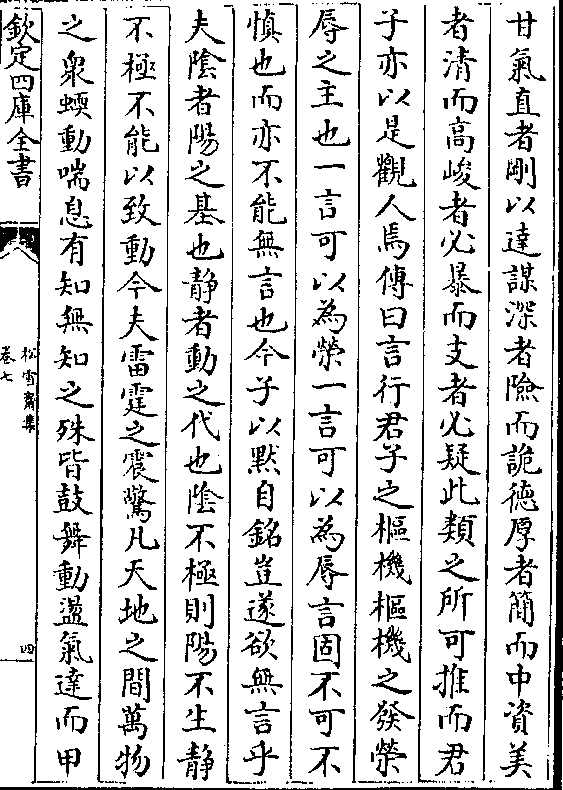 甘氣直者剛以達謀深者險而詭德厚者簡而中資美
者清而高峻者必暴而支者必疑此類之所可推而君
子亦以是觀人焉傳曰言行君子之樞機樞機之發榮
辱之主也一言可以為榮一言可以為辱言固不可不
慎也而亦不能無言也今子以黙自銘豈遂欲無言乎
夫隂者陽之基也静者動之代也隂不極則陽不生静
不極不能以致動今夫雷霆之震驚凡天地之間萬物
之衆蝡動喘息有知無知之殊皆鼓舞動盪氣達而甲
欽定四庫全書
松雪齋集
卷七
四